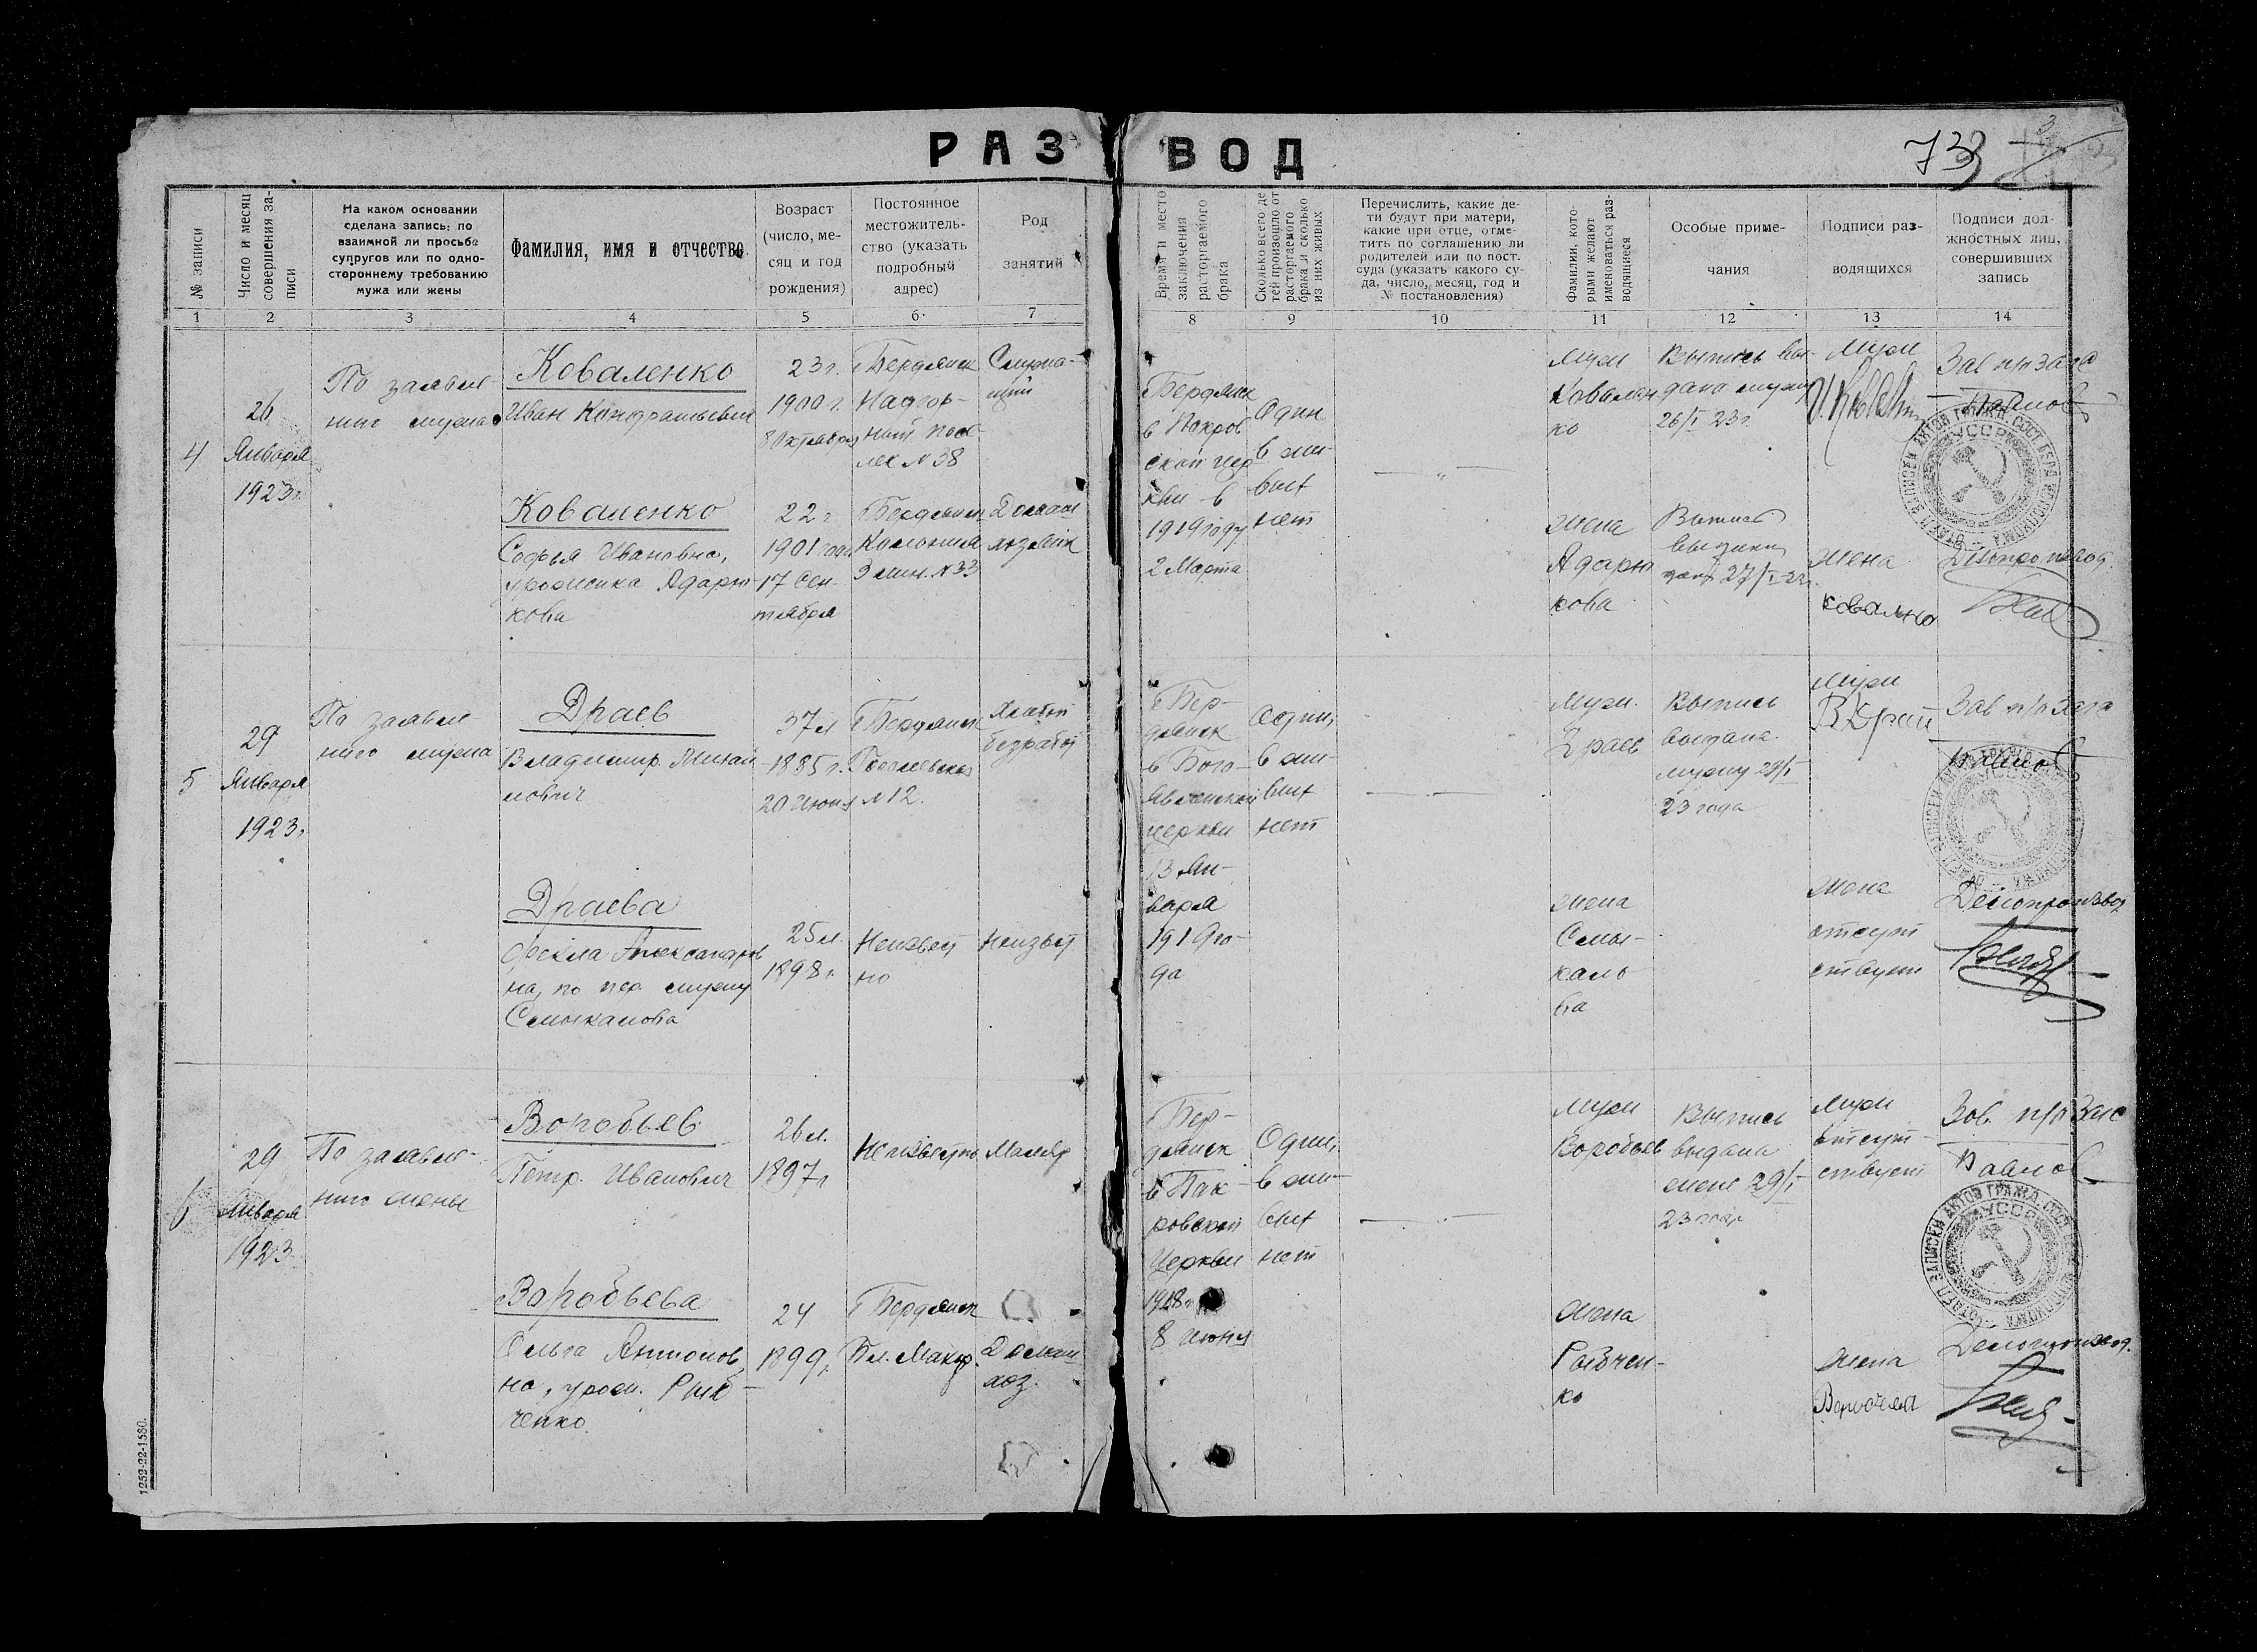 РАЗВОД
73
№ записи
Число и месяц совершения записи
На каком основании
сделана запись: по
взаимной ли просьбе
супругов или по одно-
стороннему требованию
мужа или жены
Фамилия, имя и отчество
Возраст
(число, ме-
сяц и год
рождения)
Постоянное
местожитель-
ство (указать
подробный
адрес)
Род
занятий
Время и место
заключения
расторгаемого
брака
Сколько всего де
тей произошло от
расторгаемого
брака и сколько
из них живых
Перечислить, какие де-
ти будут при матери,
какие при отце, отме-
тить по соглашению ли
родителей или по пост.
суда (указать какого су-
да, число, месяц, год и
№ постановления)
Фамилии, кото-
рыми желают
именоваться раз-
водящиеся
Особые приме-
чания
Подписи раз-
водящихся
Подписи дол-
жностных лиц,
совершивших
запись
1 2 3 4 5 6 7 8 9 10 11 12 13 14
4
26
Января
1923 г.
По заявле-
нию мужа
Коваленко
Иван Кондратьевич
23 г.
1900 г.
8 Октября
г Бердянск
Нагор-
ный посе
лек № 38
Служа-
щий
Бердянск
в Покров
ской цер
кви в
1919 году
2 Марта
Один
в жи-
вых
нет
Муж
Ковален
ко
Выпись вы-
дана мужу
26/I 23 г.
Муж
Зав п/о Загс
Коваленко
Софья Ивановна,
урожденка
кова
22 г
1901 года
17 Сен-
тября
г Бердянск
Колония
№ 33
Домаш
хозяйк
жена
кова
Выпись
27/I-23 г.
жена
Делопроизвод.
5
29
Января
1923 г.
По заявле-
нию мужа
Драев
Владимир Михай
лович
37 л
1885 г.
20 Июня
г Бердянск
№ 12.
безработ
г Бер-
дянск
в Бого-
явленской
церкви
13 Ян-
варя
1919 го-
да
Один,
в жи-
вых
нет
Муж.
Драев
Выпись
выдана
мужу 29/I
23 года
Муж
Зав п/о Загс
Драева
Фекла Александров
на, по пер. мужу
Смыкалова
25 л.
1898 г.
Неизвест
но
Неизвест
жена
Смы-
кало
ва
жена
отсут
ствует
Делопроизвод
6
29
Января
1923
По заявле-
нию жены
Воробьев
Петр. Иванович
26 л.
1897 г
Неизвестно
Маляр
г Бер-
дянск
в Пок-
ровской
Церкви
1918 г
8 июня
Один,
в жи-
вых
нет
Муж
Воробьев
Выпись
выдана
жене 29/I
23 года
Муж
отсут-
ствует
Зав. п/о Загс
Воробьева
Ольга Антонов,
на, урож. Рыб-
ченко
24
1899 г.
г Бердянск
Домаш
хоз.
жена
Рыбчен-
ко
жена
Делопроизвод.
1253-22-1580.